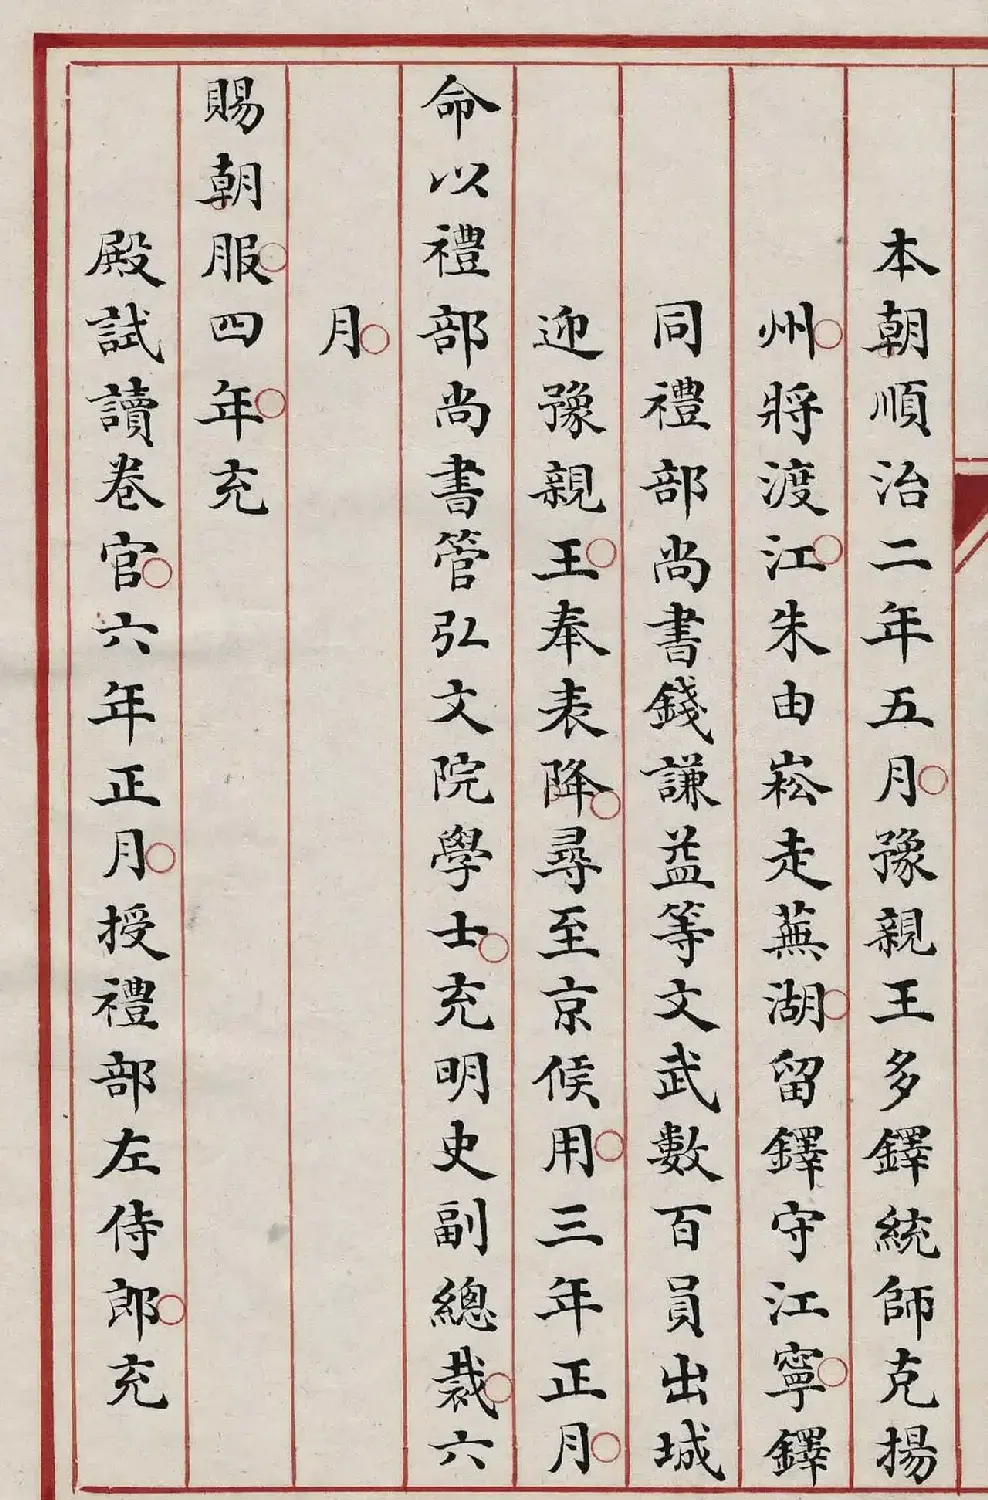 本朝順治二年五月豫親王多鐸統師克揚
州將渡江朱由崧走蕪湖留鐸守江寧鐸
同禮部尚書錢謙益等文武數百員出城
迎豫親王奉表降尋至京候用三年正月
命以禮部尚書管弘文院學士充明史副總裁六
月
賜朝服四年充
殿試讀卷官六年正月授禮部左侍郎充